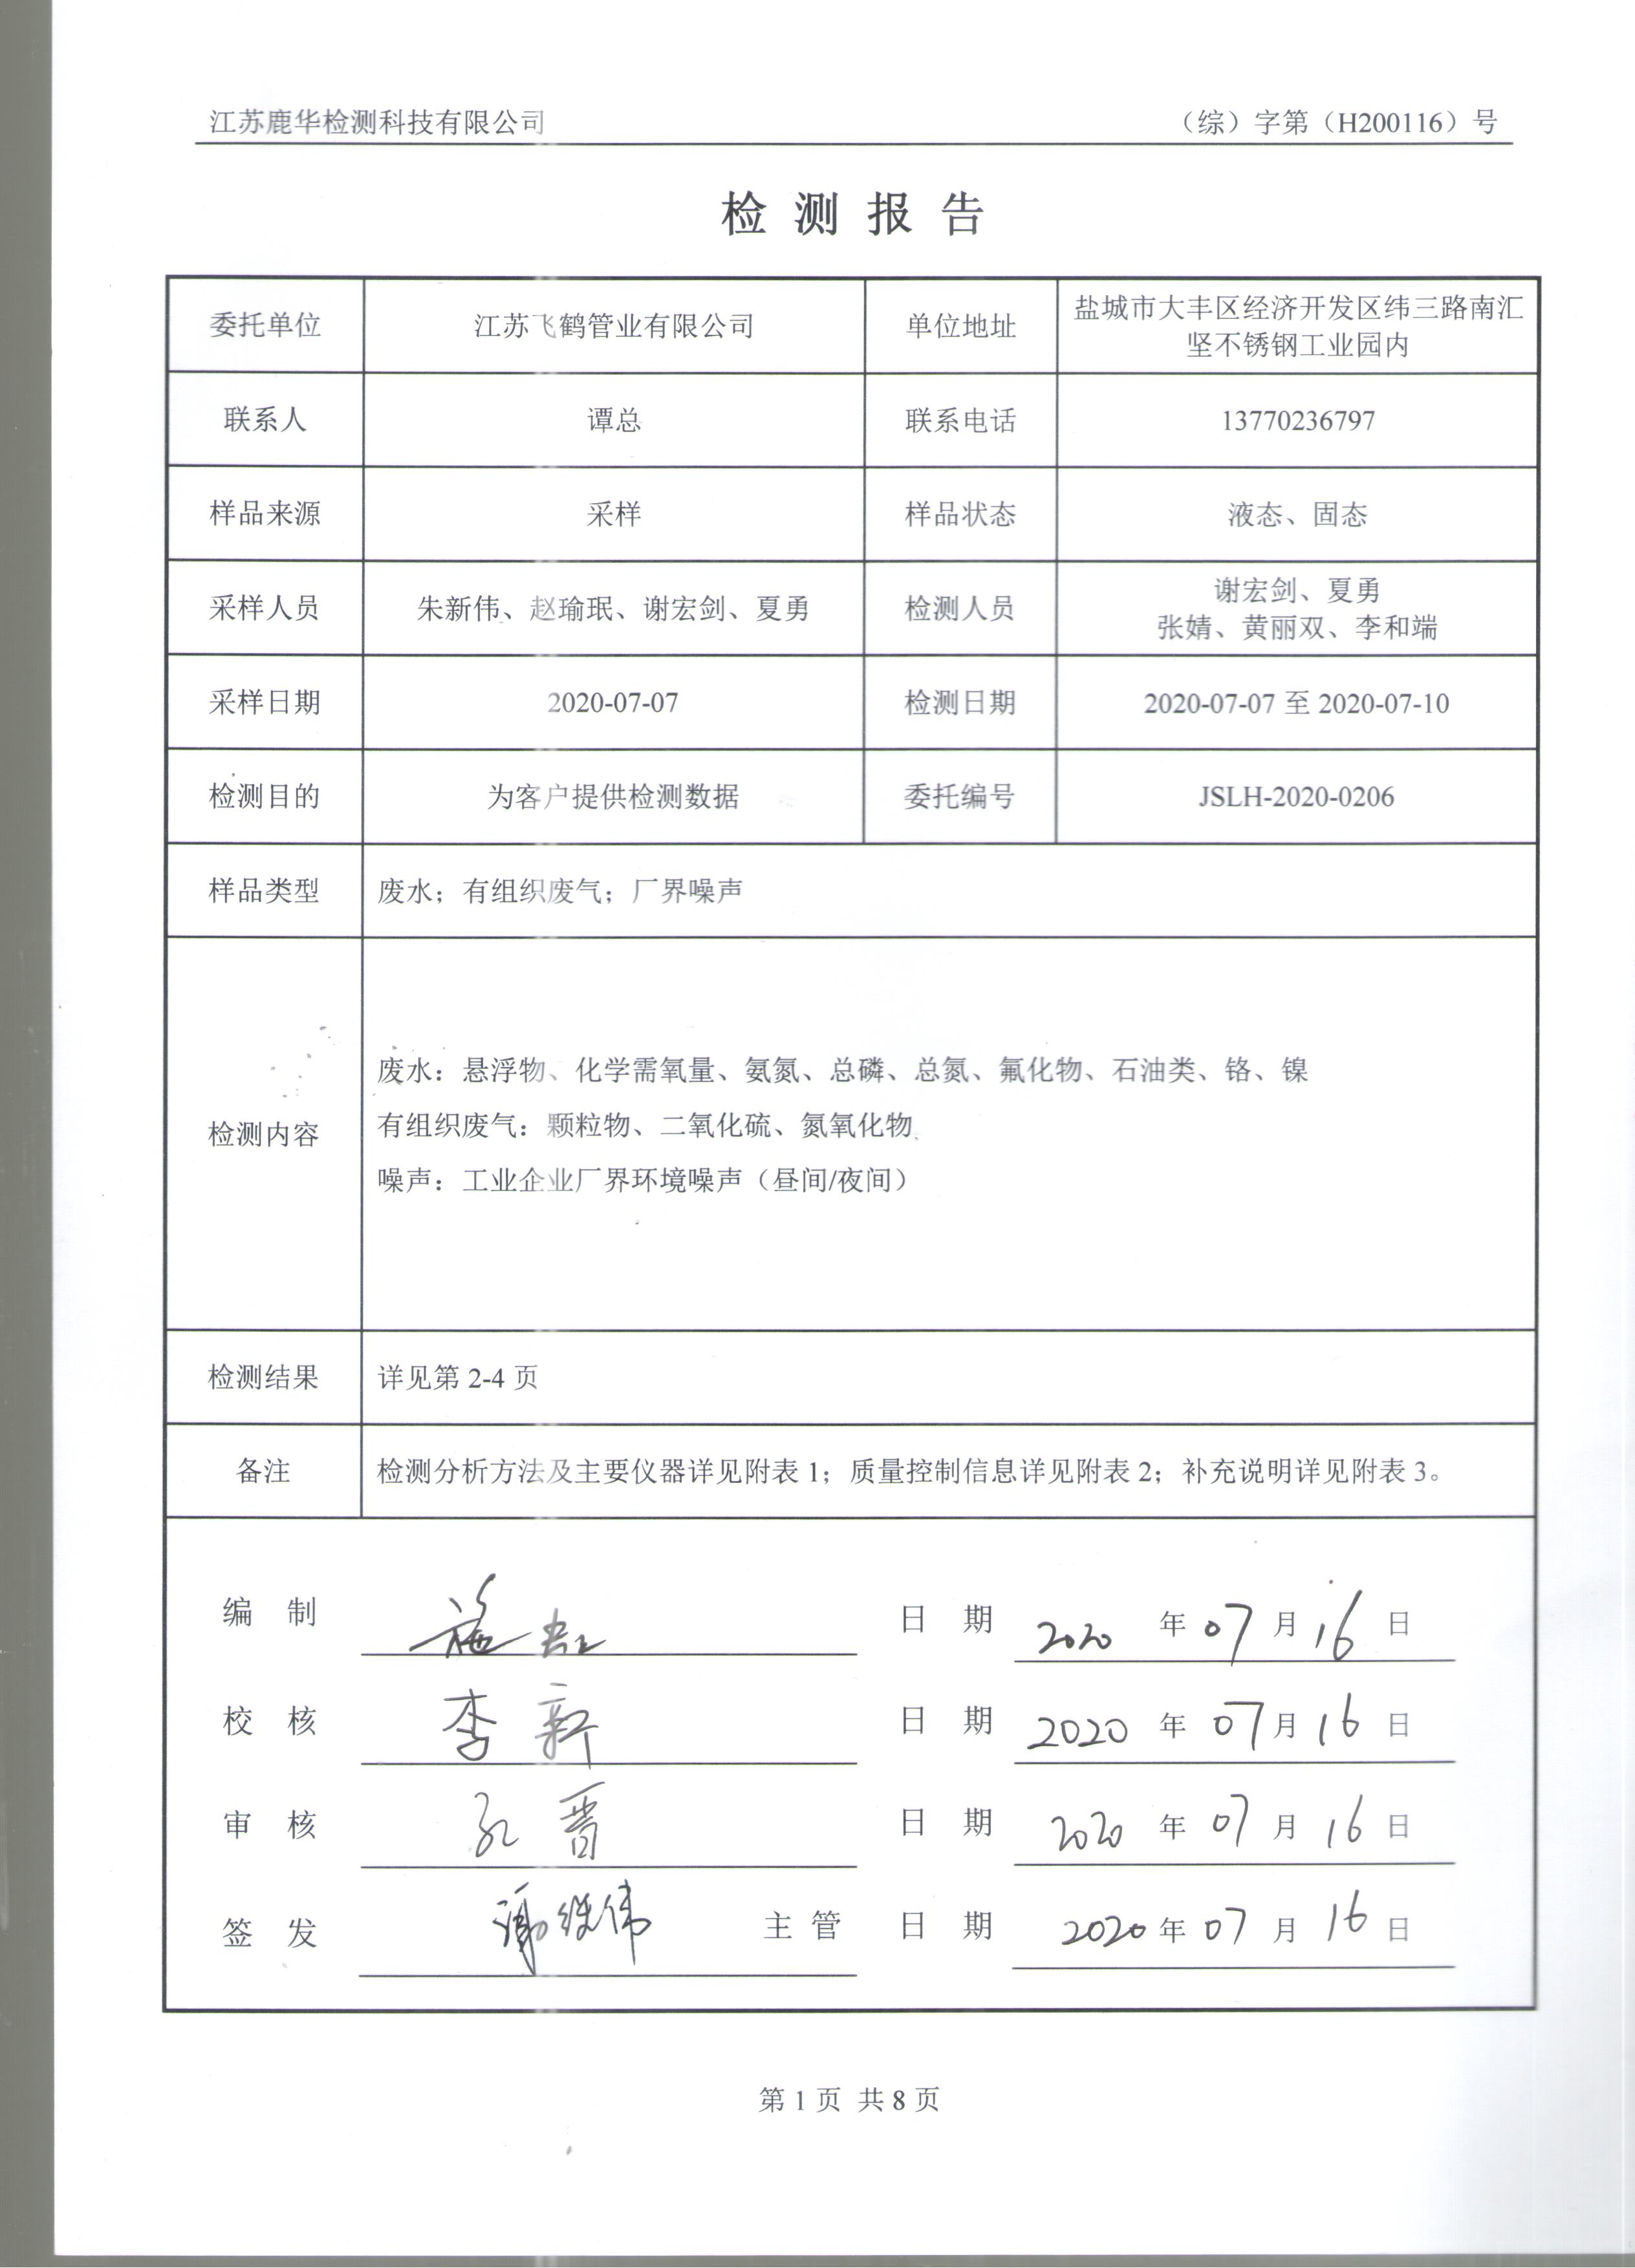 江苏鹿华检测科技有限公司 （综）字第（H200116）号
检 测 报 告
委托单位 江苏飞鹤管业有限公司 单位地址 盐城市大丰区经济开发区纬三路南汇
坚不锈钢工业园内
联系人 谭总 联系电话 13770236797
样品来源 采样 样品状态 液态、固态
采样人员 朱新伟、赵瑜珉、谢宏剑、夏勇 检测人员 谢宏剑、夏勇
张婧、黄丽双、李和端
采样日期 2020-07-07 检测日期 2020-07-07 至 2020-07-10
检测目的 为客户提供检测数据 委托编号 JSLH-2020-0206
样品类型 废水；有组织废气；厂界噪声
检测内容
废水：悬浮物、化学需氧量、氨氮、总磷、总氮、氟化物、石油类、铬、镍
有组织废气：颗粒物、二氧化硫、氮氧化物
噪声：工业企业厂界环境噪声（昼间/夜间）
检测结果 详见第 2-4 页
备注 检测分析方法及主要仪器详见附表 1；质量控制信息详见附表 2；补充说明详见附表 3。
编 制 日 期 2020 年 07 月 16 日
校 核 李新 日 期 2020 年 07 月 16 日
审 核 孔晋 日 期 2020 年 07 月 16 日
签 发 主 管 日 期 2020 年 07 月 16 日
第 1 页 共 8 页